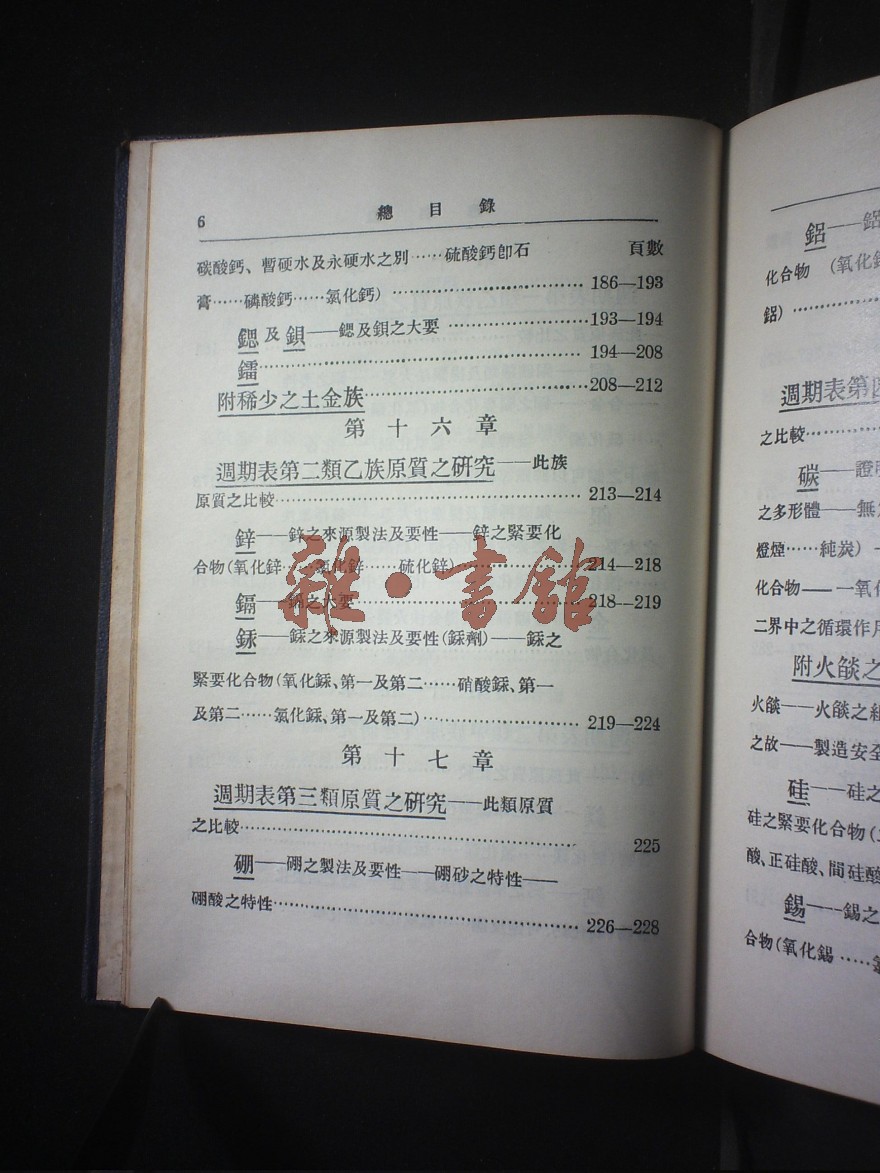 6 總目錄
碳酸鈣、暫硬水及永硬水之別……硫酸鈣卽石 頁數
膏……磷酸鈣……氯化鈣)……186—193
鍶及鋇——鍶及鋇之大要……193—194
鐳……194—208
附稀少之土金族……208—212
第十六章
週期表第二類乙族原質之研究——此族
原質之比較……213—214
鋅——鋅之來源製法及要性——鋅之緊要化
合物(氧化鋅……氯化鋅……硫化鋅)……214—218
鎘——鎘之大要……218—219
銾——銾之來源製法及要性(銾劑)——銾之
緊要化合物(氧化銾、第一及第二……硝酸銾、第一
及第二……氯化銾、第一及第二)……219—224
第十七章
週期表第三類原質之研究——此類原質
之比較……225
硼——硼之製法及要性——硼砂之特性——
硼酸之特性……226—228
雜·書館
鋁——鋁
化合物 (氧化
鋁)……
週期表第
之比較……
碳——證
之多形體——無
燈煙……純炭)
化合物——一氧
二界中之循環作
附火燄之
火燄——火燄之
之故——製造安全
硅——硅之
硅之緊要化合物(
酸、正硅酸、間硅酸
錫——錫之
合物(氧化錫……